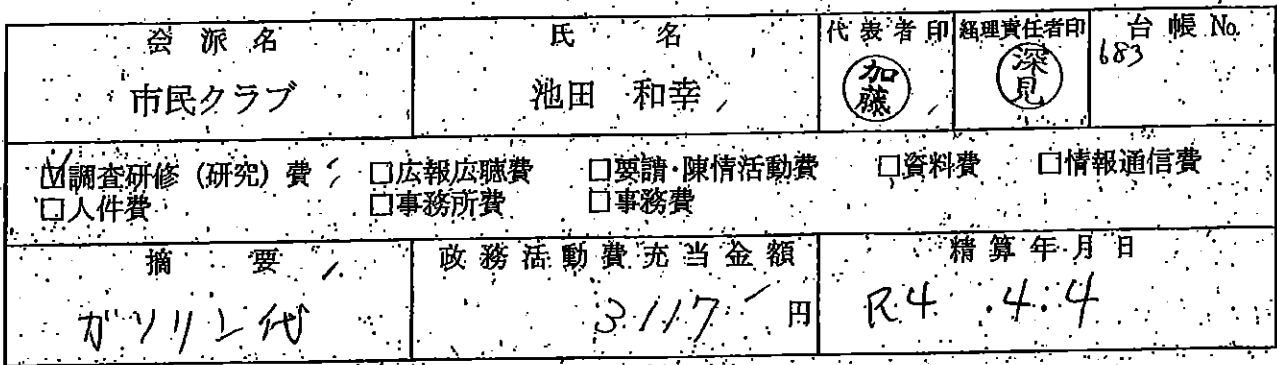 会派名 氏名 代表者印 経理責任者印 台帳No.
市民クラブ 池田 和幸 加藤 深見 683
☑調査研修(研究)費 □広報広聴費 □要請・陳情活動費 □資料費 □情報通信費
□人件費 □事務所費 □事務費
摘要 政務活動費充当金額 精算年月日
ガソリン代 3117円 R4.4.4